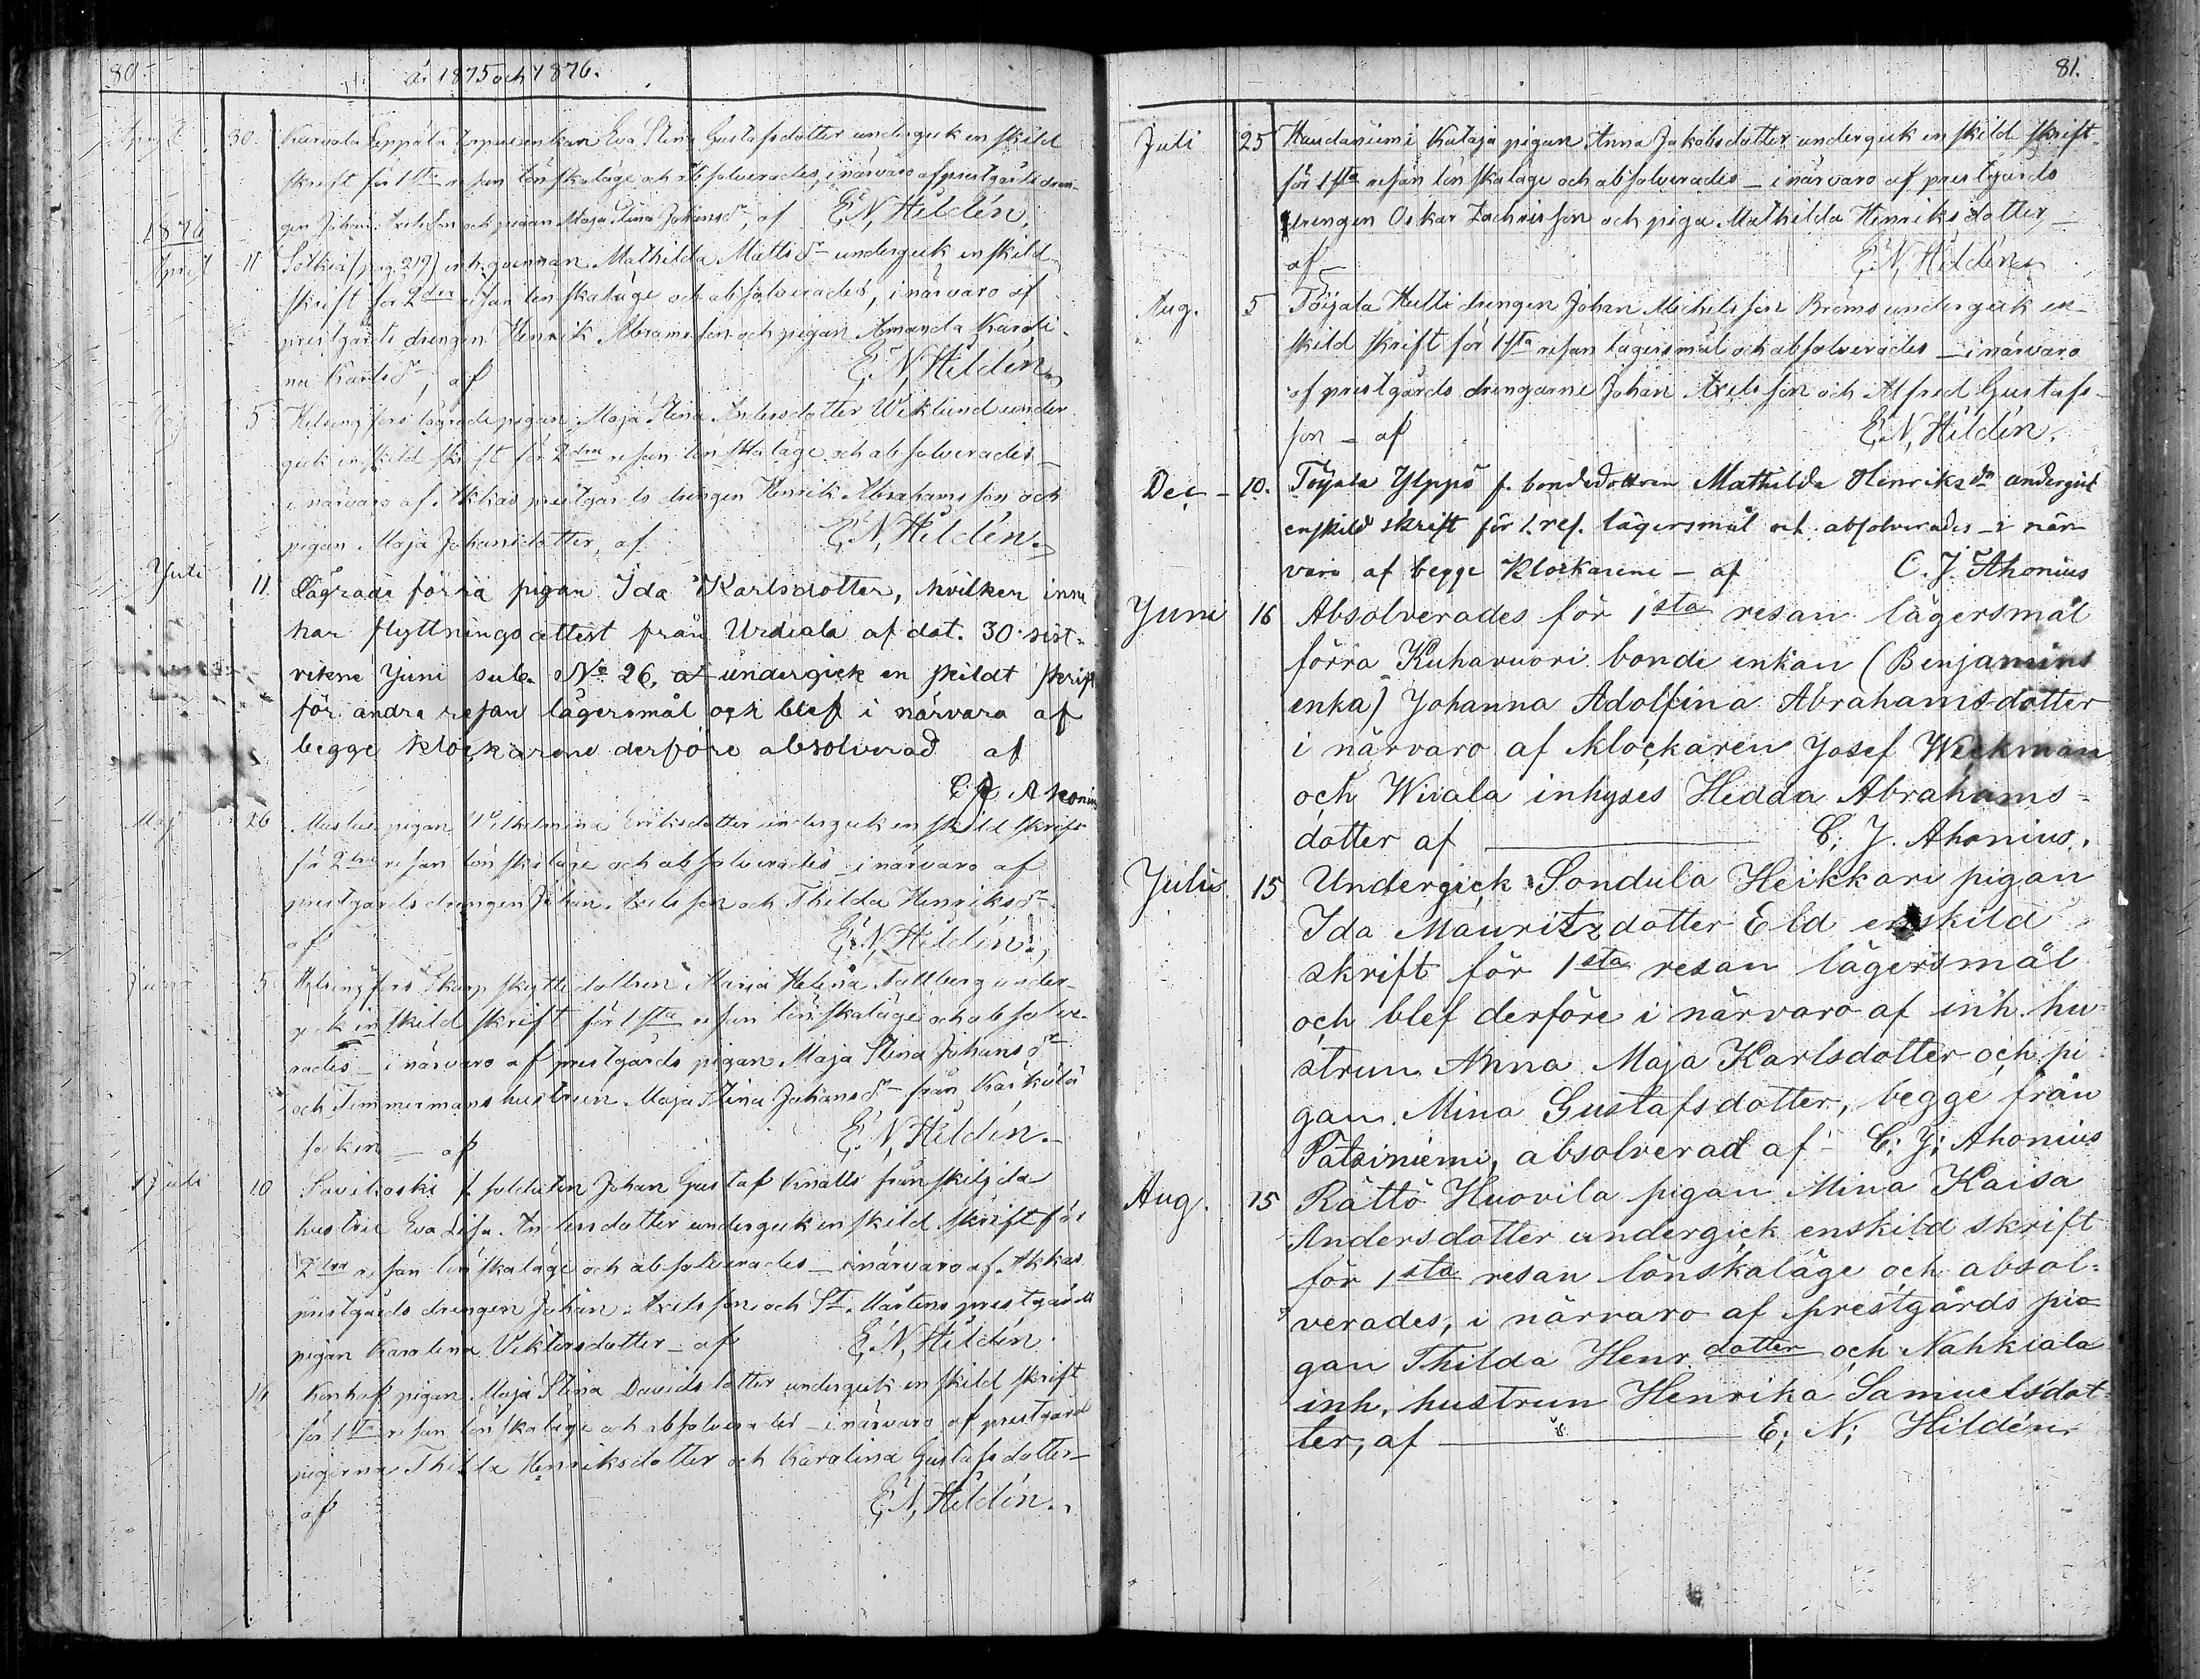 80.
år 1875 och 1876.
April 30. Kurvola Leppälä torpare enkan Eva Stina Gustafsdotter undergick enskild
skrift för 1sta resan lönskaläge och absolverades, i närvaro af prestgårds dren-
gen Johan Axelsson och pigan Maja Stina Johansdr, af E. N. Hildén.
1876
April 11 Sotkia (pag. 219) inh. qvinnan Mathilda Mattsdr undergick enskild
skrift för 2dra resan lönskaläge och absolverades, i närvaro af
prestgårds drengen Henrik Abramsson och pigan Amanda Karoli-
na Karlsdr, af E. N. Hildén
Maj 5 Helsingfors lägrade pigan Maja Stina Andersdotter Weklund under
gick enskild skrift för 2dra resan lönskaläge och absolverades _
i närvaro af Akkas prestgårds drengen Henrik Abrahamsson och
pigan Maja Johansdotter, af E. N. Hildén.
Juli 11. Lägrade förra pigan Ida Karlsdotter, hvilken inne
har flyttnings attest från Urdiala af dat. 30 sist-
vikne Juni sub. No 26, undergick en skildt skrift
för andra resan lägersmål och blef i närvara af
begge klockarene derföre absolverad af
C. J. Ahonius
Maj 26 pigan Wilhelmina Eriksdotter undergick enskild skrift
för 2dra resan lönskaläge och absolverades _ i närvaro af
prestgårds drengen Johan Axelsson och Thilda Henriksdr
af E. N. Hildén.
Juni 5. Helsingfors Skarpskyttedottren Maria Helena under-
gick enskild skrift för 1sta resan lönskaläge och absolve-
rades _ i närvaro af prestgårds pigan Maja Stina Johansdr
och Timmermans hustrun Maja Stina Johansdr från Karkola
socken _ af E. N. Hildén.
Juli 10 Savikoski f. soldaten Johan Gustaf Knalls frånskiljda
hustru Eva Lisa Andersdotter undergick enskild skrift för
2dra resan lönskaläge och absolverades _ i närvaro af Akkas
prestgårds drengen Johan Axelsson och St. Mårtens prestgårds
pigan Karolina Viktorsdotter _ af E. N. Hildén
pigan Maja Stina Davidsdotter undergick enskild skrift
för 1sta resan lönskaläge och absolverades _ i närvaro af prestgård
pigorna Thilda Henriksdotter och Karolina Gustafsdotter _
af E. N. Hildén.
81.
Juli 25 Haudaniemi Kataja pigan Anna Jakobsdotter undergick enskild skrift
för 1sta resan lönskaläge och absolverades _ i närvaro af prestgårds
drengen Oskar Zachrisson och piga Mathilda Henriksdotter _
af _ E. N. Hildén
Aug. 5 Toijala Hutti drengen Johan Mickelsson Broms undergick en-
skild skrift för 1sta resan lägersmål och absolverades _ i närvaro
af prestgårds drengarne Johan Axelsson och Alfred Gustafs-
son _ af E. N. Hildén.
Dec - 10. Toijala Ylppö f. bondedottren Mathilda Henriksdr undergick
enskild skrift för 1. res. lägersmål och absolverades _ i när-
varo af begge klockarene _ af C. J. Ahonius
Juni 16 Absolverades för 1sta resan lägersmål
förra Kuhavuori bonde enkan (Benjamins
enka) Johanna Adolfina Abrahamsdotter
i närvaro af klockaren Josef Weckman
och Wiiala inhyses Hedda Abrahams-
dotter af C. J. Ahonius.
Juli 15 Undergick Sondula Heikkari pigan
Ida Mauritzdotter Eld enskild
skrift för 1sta resan lägersmål
och blef derföre i närvaro af inh. hu-
strun Anna Maja Karlsdotter och pi
gan Mina Gustafsdotter, begge från
Patsiniemi, absolverad af C. J. Ahonius
Aug. 15 Rättö Huovila pigan Mina Kaisa
Andersdotter undergick enskild skrift
för 1sta resan lönskaläge och absol-
verades, i närvaro af prestgårds pi-
gan Thilda Henr. dotter och Nahkiala
inh. hustrun Henrika Samuelsdot-
ter, af E. N. Hildén